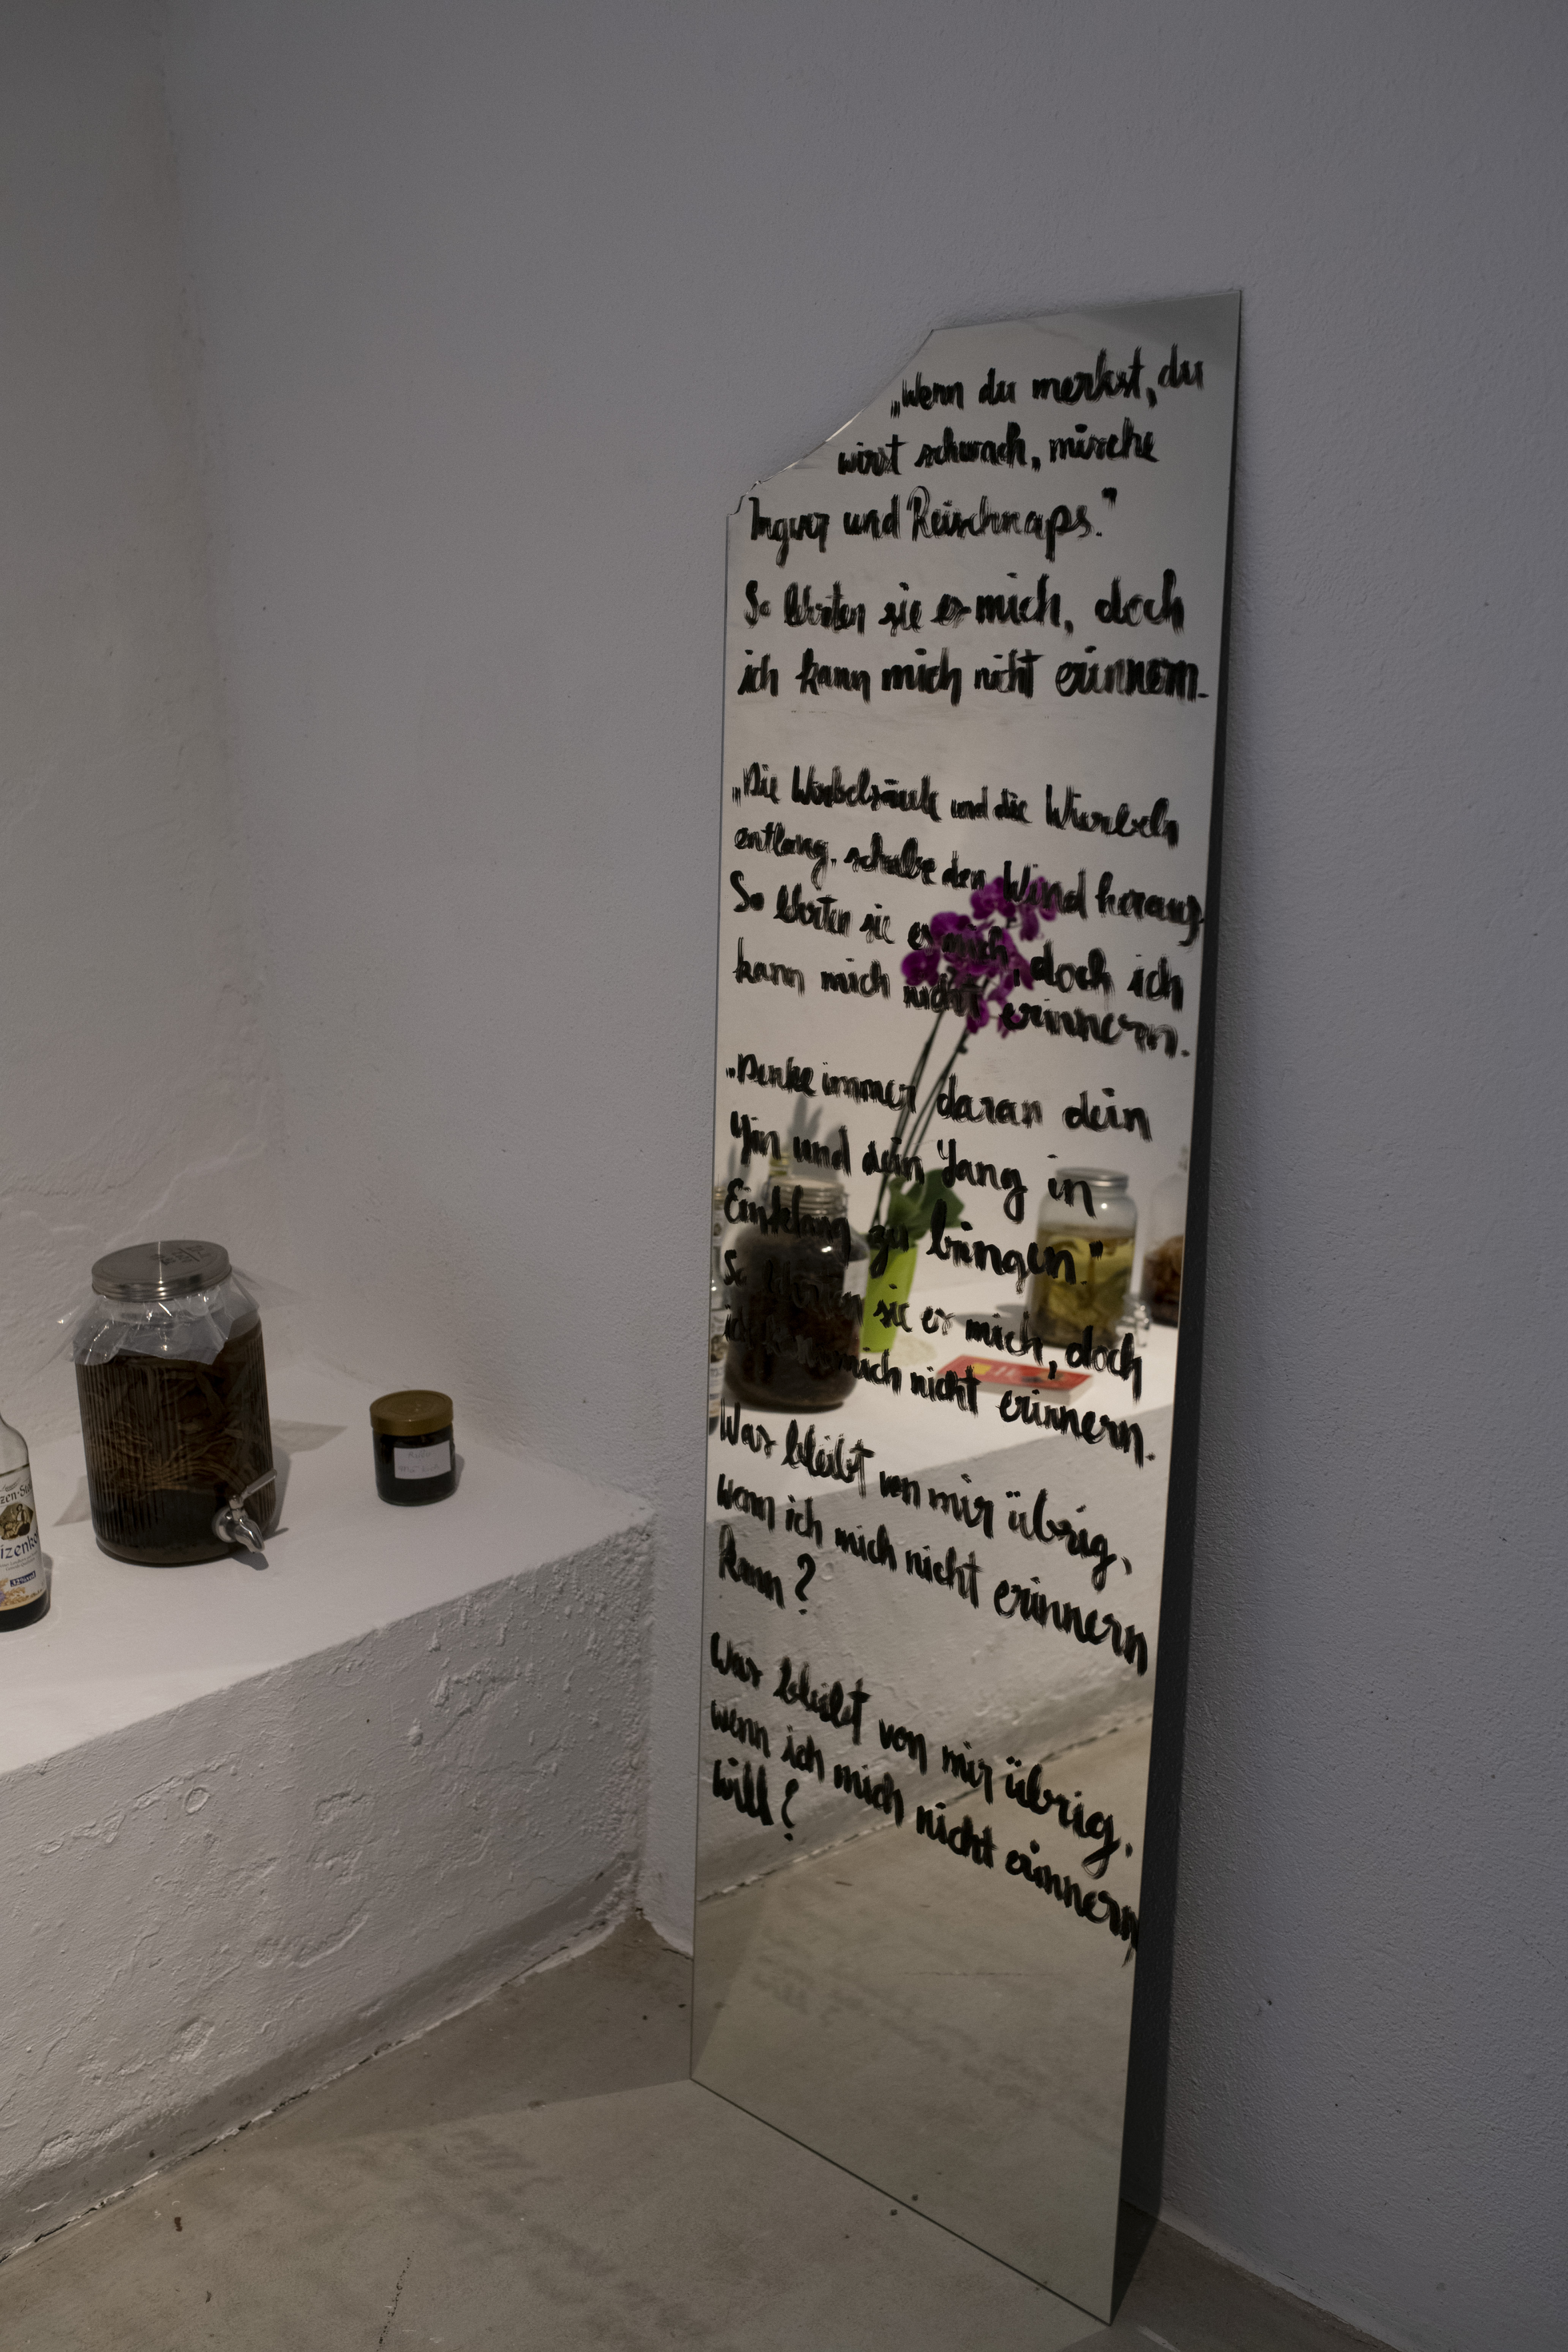 „Wenn du merkst, du
wirst schwach, mische
Ingwer und Reisschnaps."
So lehrten sie es mich, doch
ich kann mich nicht erinnern.
„Die Wirbelsäule und die Wurbeln
entlang, schabe den Wind heraus
So lehrten sie es mich, doch ich
kann mich nicht erinnern.
„Denke immer daran dein
Yin und dein Yang in
Einklang zu bringen."
So lehrten sie es mich, doch
ich kann mich nicht erinnern.
Was bleibt von mir übrig,
wenn ich mich nicht erinnern
kann?
Was bleibt von mir übrig,
wenn ich mich nicht erinnern
will?